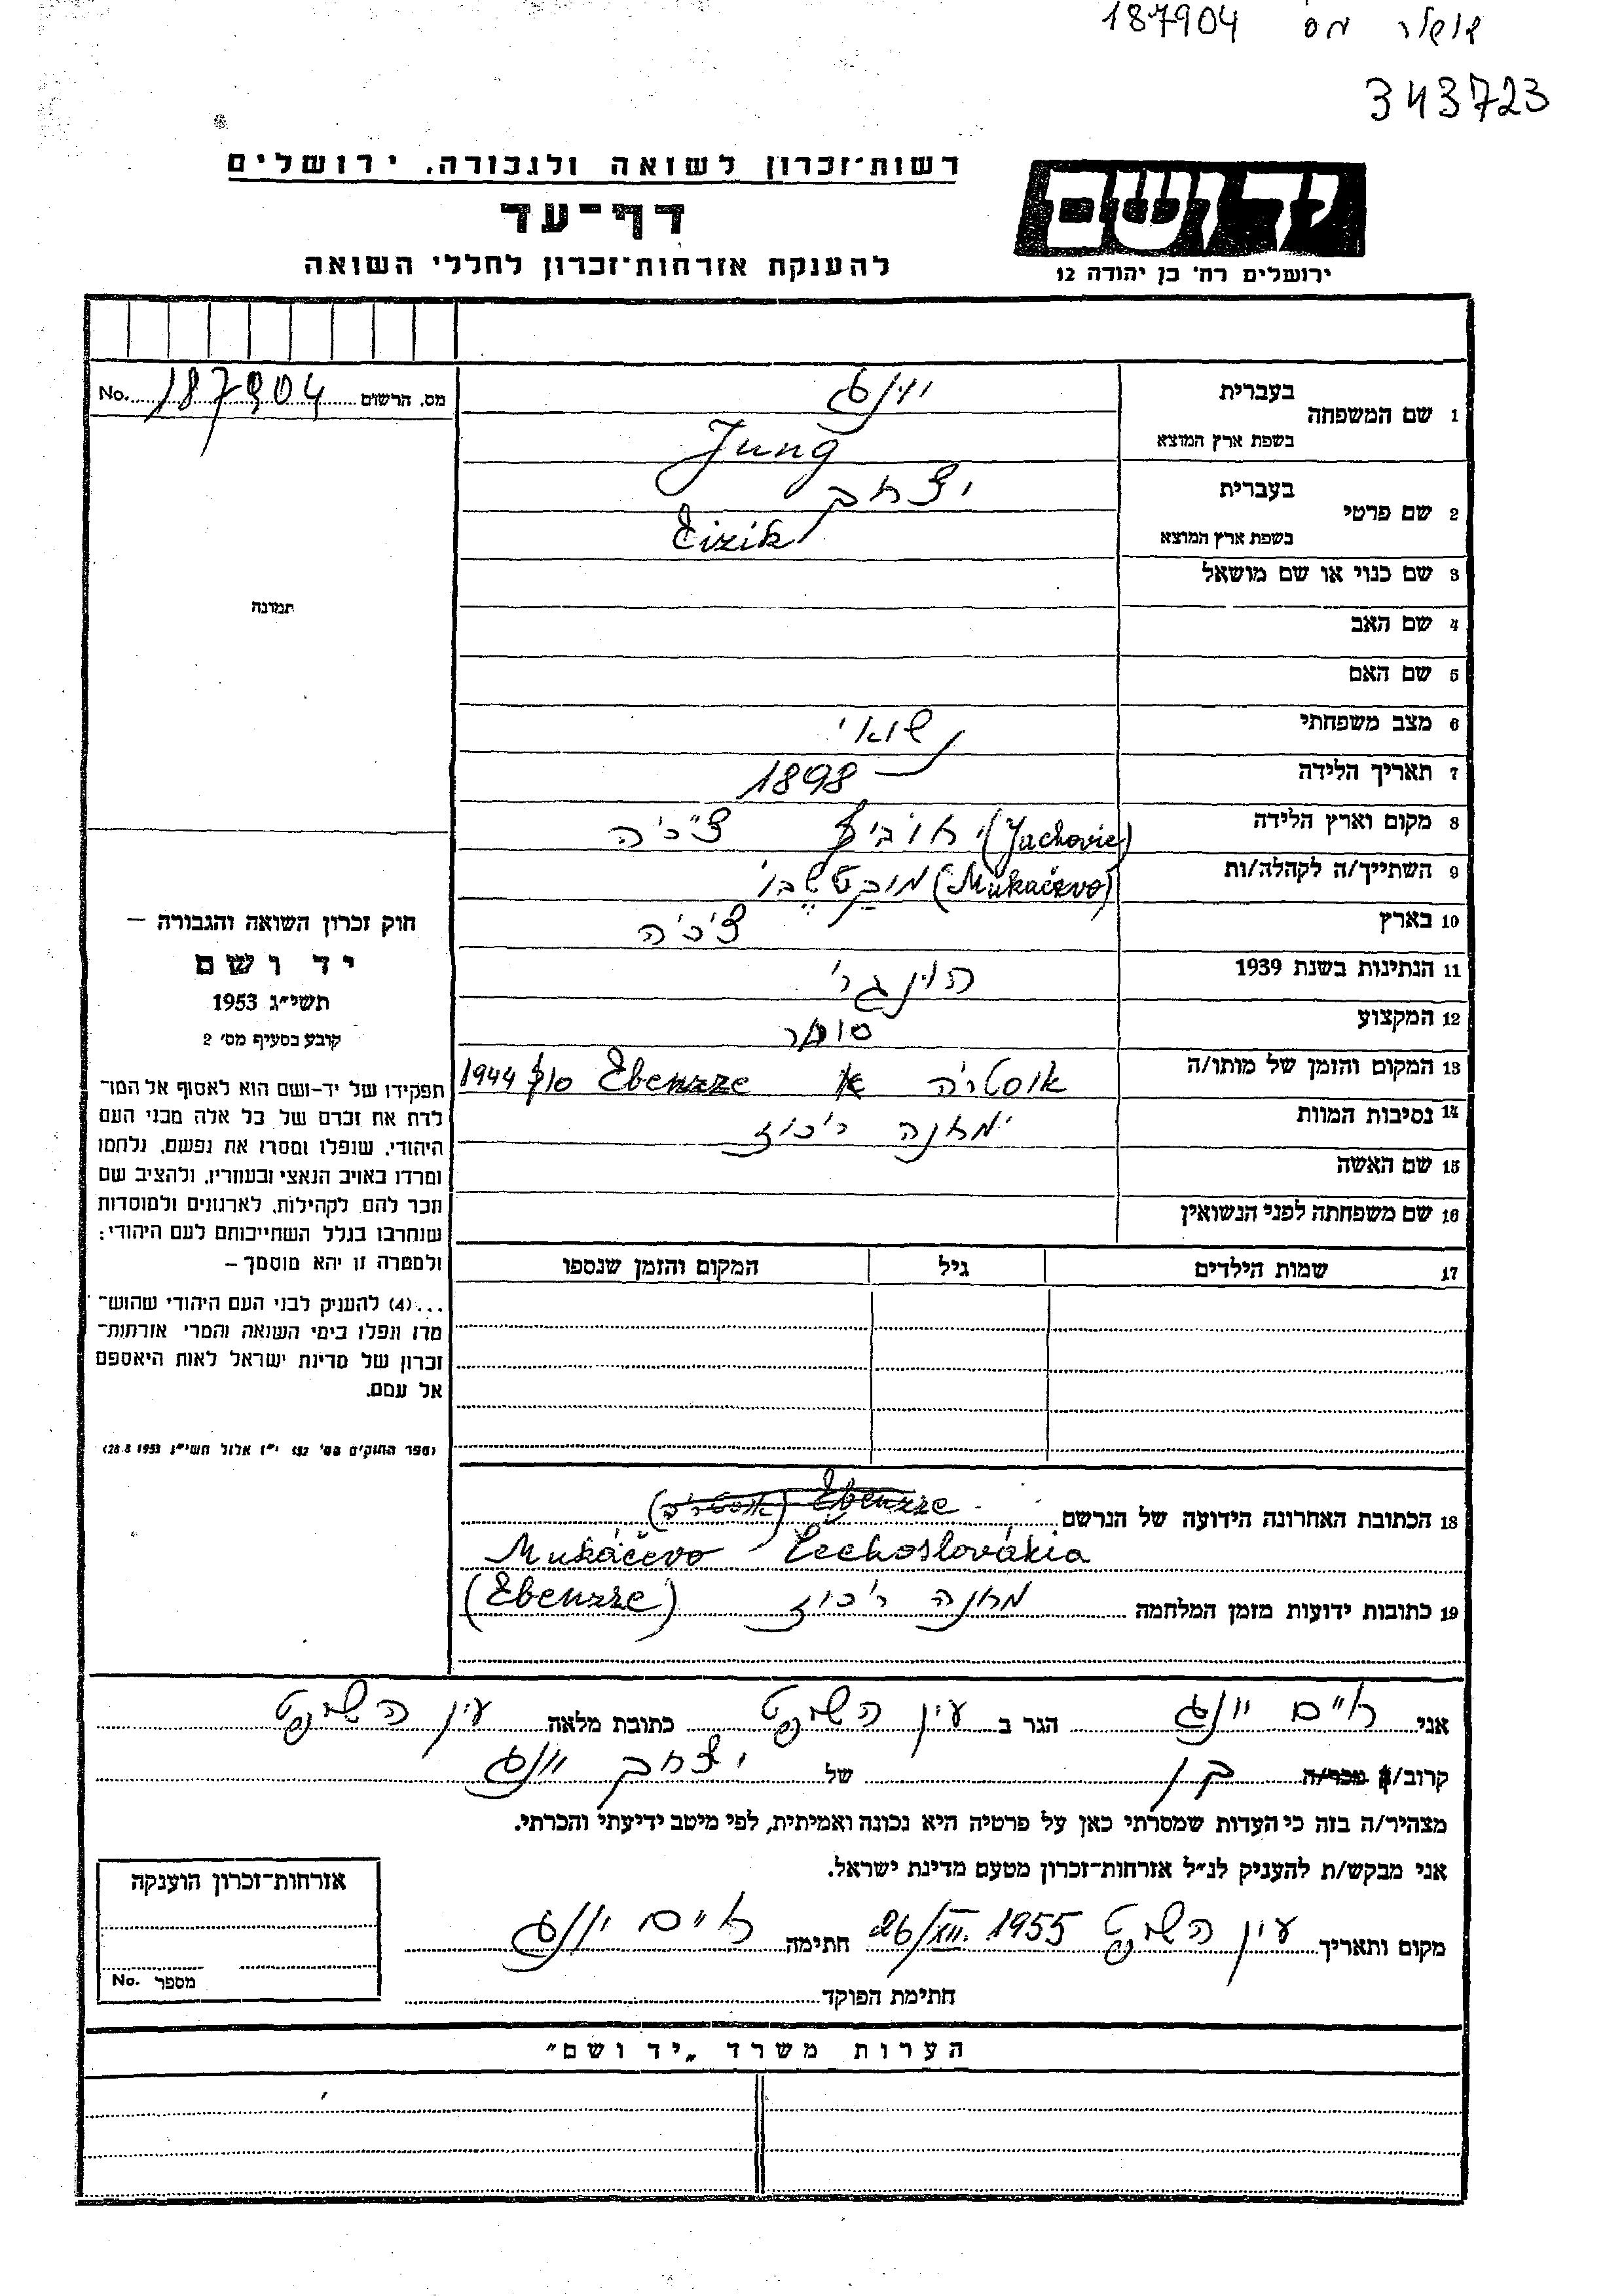 שואלר מס 187904
343723
יד ושם
ירושלים רח' בן יהודה 12
רשות־זכרון לשואה ולגבורה, ירושלים
דף־עד
להענקת אזרחות־זכרון לחללי השואה
מס. הרשום 187904 No.
1 שם המשפחה
בעברית יונג
בשפת ארץ המוצא Jung
2 שם פרטי
בעברית יצחק
בשפת ארץ המוצא Eizik
3 שם כנוי או שם מושאל
4 שם האב
5 שם האם
6 מצב משפחתי נשואי
7 תאריך הלידה 1898
8 מקום וארץ הלידה (Juchovic) צ'כיה
9 השתייך/ה לקהלה/ות (Mukačevo) מוקטשבו
10 בארץ צ'כיה
11 הנתינות בשנת 1939 הונגרי
12 המקצוע סוחר
13 המקום והזמן של מותו/ה אוסטריה Ebenzze סוף 1944
14 נסיבות המוות מחנה ריכוז
15 שם האשה
16 שם משפחתה לפני הנשואין
17 שמות הילדים גיל המקום והזמן שנספו
18 הכתובת האחרונה הידועה של הנרשם Ebenzze (אוסטריה)
Mukačevo Čechoslovákia
19 כתובות ידועות מזמן המלחמה מחנה ריכוז (Ebenzze)
תמונה
חוק זכרון השואה והגבורה —
יד ושם
תשי"ג 1953
קובע בסעיף מס' 2
תפקידו של יד-ושם הוא לאסוף אל המו־
לדת את זכרם של כל אלה מבני העם
היהודי, שנפלו ומסרו את נפשם, נלחמו
ומרדו באויב הנאצי ובעוזריו, ולהציב שם
וזכר להם, לקהילות, לארגונים ולמוסדות
שנחרבו בגלל השתייכותם לעם היהודי;
ולמטרה זו יהא מוסמך —
...(4) להעניק לבני העם היהודי שהוש־
מדו ונפלו בימי השואה והמרי אזרחות־
זכרון של מדינת ישראל לאות היאספם
אל עמם.
(ספר החוקים מס' 132 י"ז אלול תשי"ג 28.8.1953)
אני חיים יונג הגר ב עין השופט כתובת מלאה עין השופט
קרוב/ה מכר/ה בן של יצחק יונג
מצהיר/ה בזה כי העדות שמסרתי כאן על פרטיה היא נכונה ואמיתית, לפי מיטב ידיעתי והכרתי.
אני מבקש/ת להעניק לנ"ל אזרחות־זכרון מטעם מדינת ישראל.
מקום ותאריך עין השופט 26/XII. 1955 חתימה חיים יונג
חתימת הפוקד
אזרחות־זכרון הוענקה
מספר No.
הערות משרד „יד ושם"